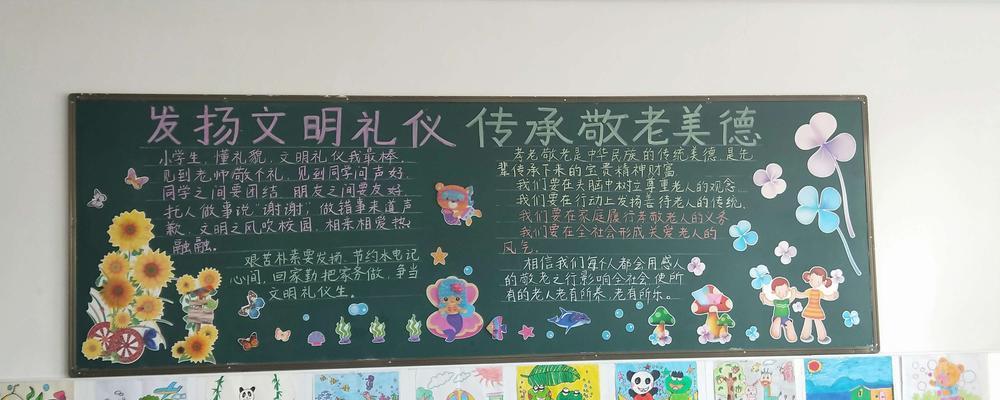 发扬文明礼仪 传承敬老美德
小学生，懂礼貌，文明礼仪我最棒，
见到老师敬个礼，见到同学问声好，
同学之间要团结，朋友之间要友好，
托人做事说“谢谢”，做错事来道声
歉，文明之风吹校园，相亲相爱热
融融。
艰苦朴素要发扬，节约水电记
心间，回家勤把家务做，争当
文明礼仪生。
孝老敬老是中华民族的传统美德，是先
辈传承下来的宝贵精神财富
我们要在头脑中树立尊重老人的观念
我们要在行动上发扬善待老人的传统，
我们要在家庭履行孝敬老人的义务
我们要在全社会形成关爱老人的
风气。
相信我们每个人都会用感人
的敬老之行影响全社会使所
有的老人老有所养，老有所乐。